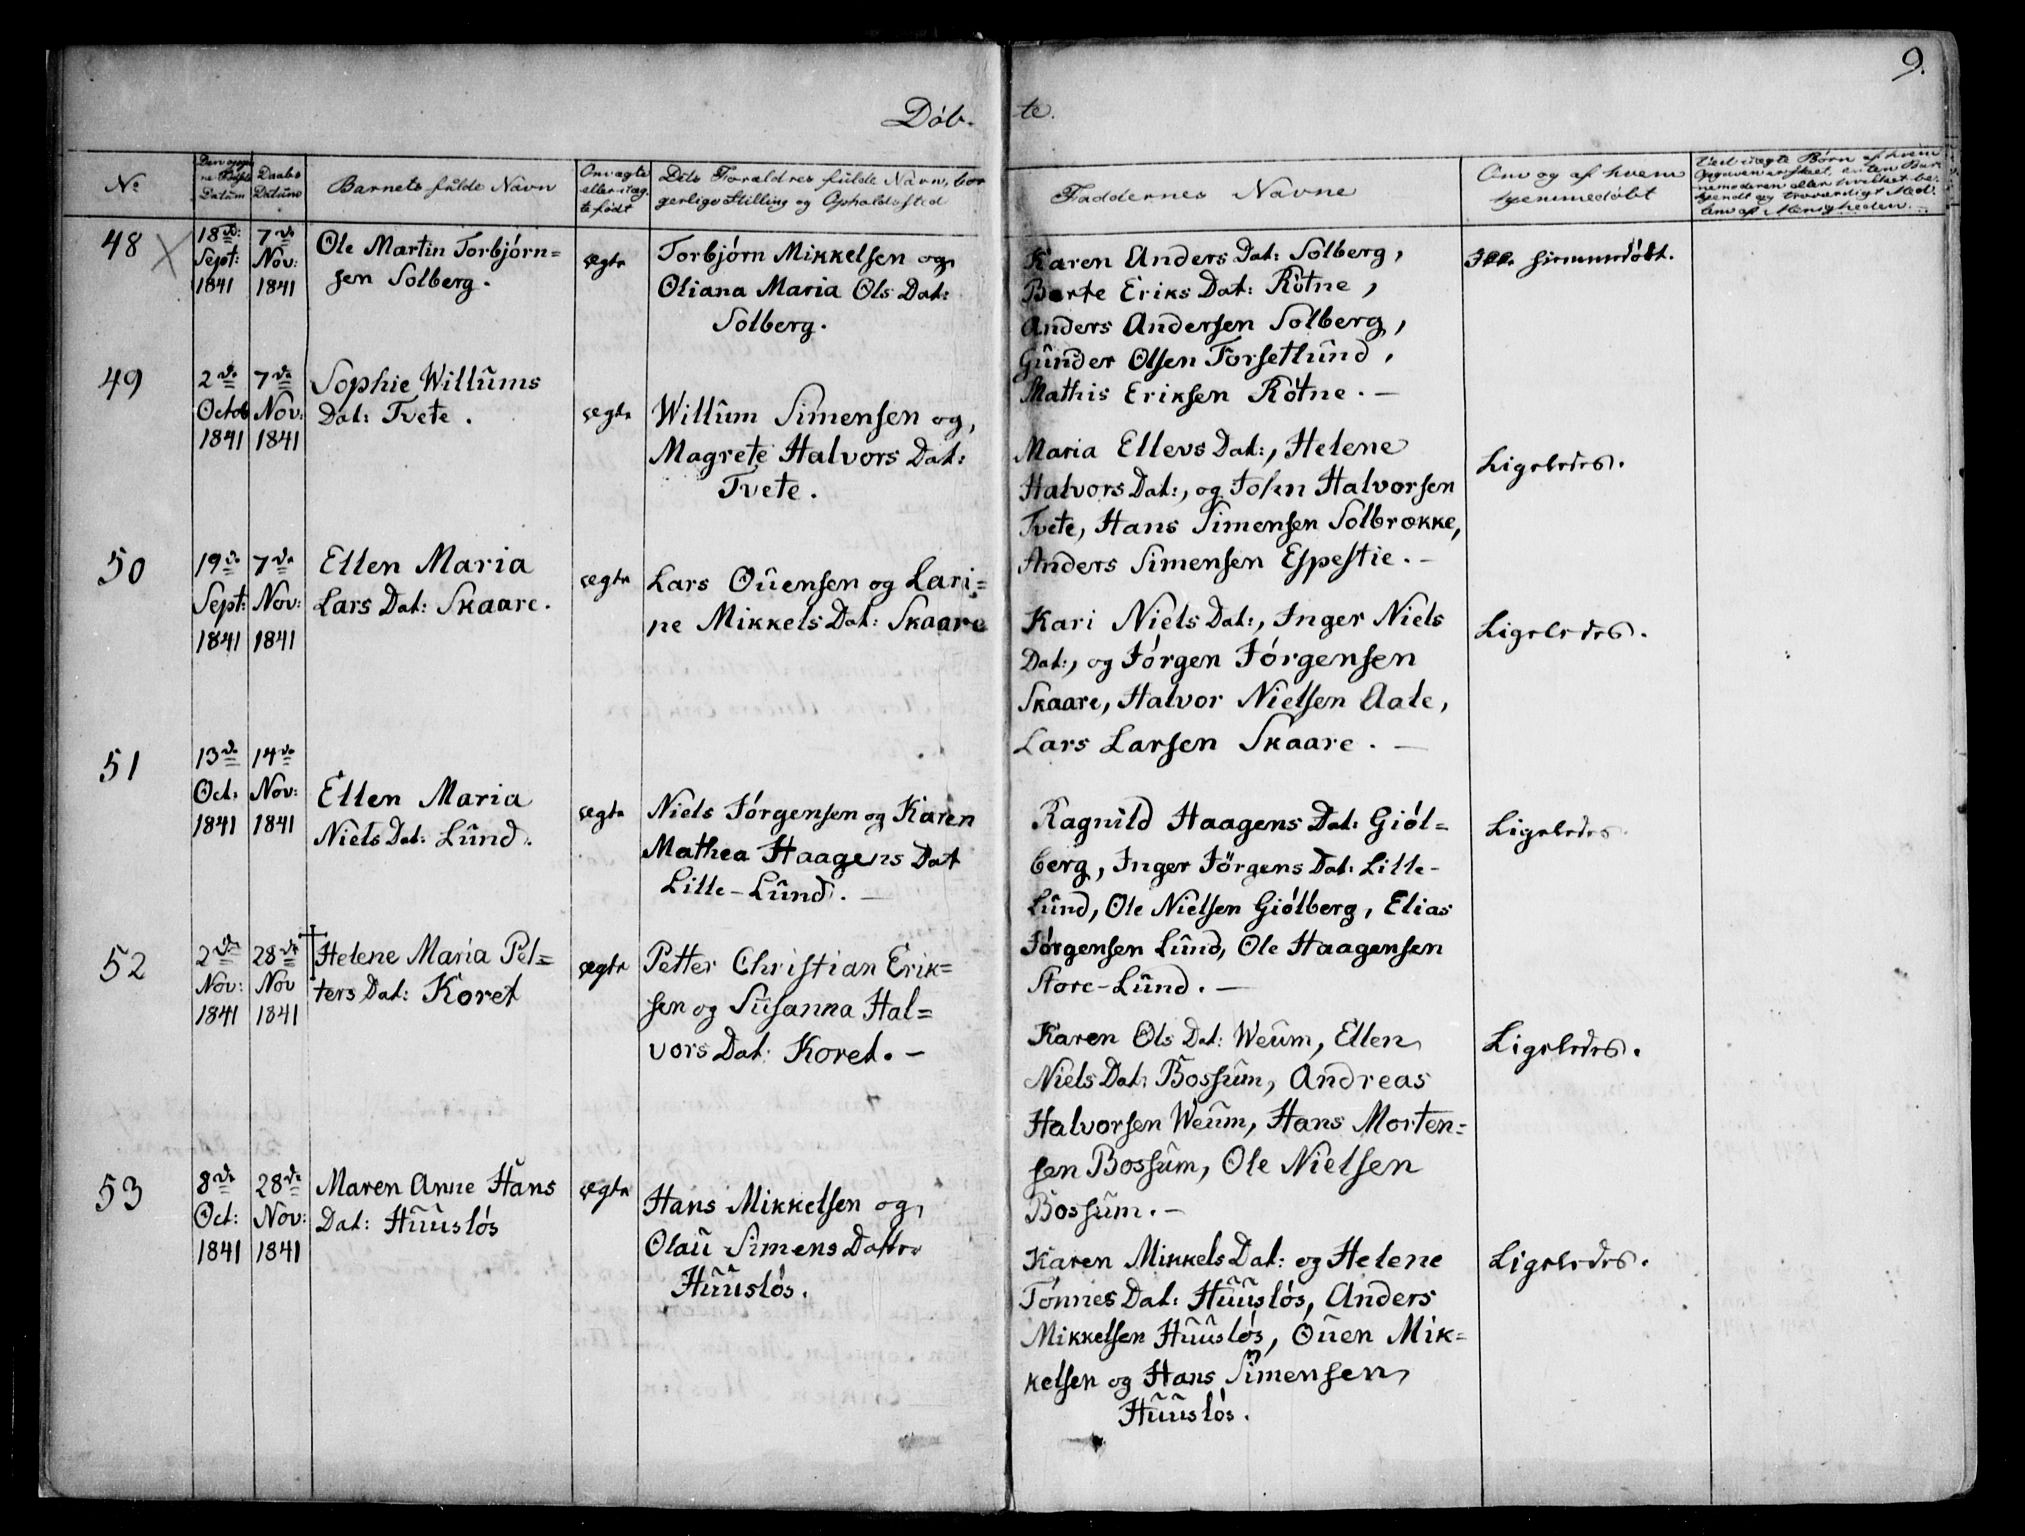 9.
Döb-
te.
No
Den opgivne Føds Datum
Daabs Datum
Barnets fulde Navn
Om ægte eller uægte født
Dets Forældres fulde Navn, borgerlige Stilling og Opholdssted
Faddernes Navne
Om og af hvem hjemmedøbt
48
18de Sept: 1841
7de Nov: 1841
Ole Martin Torbjórn=
sen Solberg.
ægte
Torbjórn Mikkelsen og
Oliana Maria Ols Dat:
Solberg.
Karen Anders Dat: Solberg,
Berte Eriks Dat: Rötne,
Anders Andersen Solberg,
Gûnder Olsen Forsetlûnd,
Mathis Eriksen Rötne. —
Ikke hjemmedøbt.
49
2de Octob 1841
7de Nov: 1841
Sophie Willûms
Dat: Tvete.
ægte
Willûm Simensen og
Magrete Halvors Dat:
Tvete.
Maria Ellevs Dat:, Helene
Halvors Dat:, og John Halvorsen
Tvete, Hans Simensen Solbrække,
Anders Simensen Espestie. —
Ligeledes.
50
19de Sept: 1841
7de Nov: 1841
Ellen Maria
Lars Dat: Skaare.
ægte
Lars Oûensen og Lari=
ne Mikkels Dat: Skaare
Kari Niels Dat:, Inger Niels
Dat:, og Jórgen Jórgensen
Skaare, Halvor Nielsen Aale,
Lars Larsen Skaare. —
Ligeledes.
51
13de Oct: 1841
14de Nov: 1841
Ellen Maria
Niels Dat: Lûnd.
ægte
Niels Jórgensen og Karen
Mathea Haagens Dat
Lille-Lûnd. —
Ragnild Haagens Dat: Giól=
berg, Inger Jörgens Dat: Lille-
Lûnd, Ole Nielsen Giólberg, Elias
Jórgensen Lûnd, Ole Haagensen
Store-Lûnd. —
Ligeledes.
52
2den Nov: 1841
28de Nov 1841
Helene Maria Pet=
ters Dat: Koret
ægte
Petter Christian Erik=
sen og Sûsanna Hal=
vors Dat: Koret. —
Karen Ols Dat: Weûm, Ellen
Niels Dat: Bossûm, Andreas
Halvorsen Weûm, Hans Morten=
sen Bossûm, Ole Nielsen
Bossûm. —
Ligeledes.
53
8de Oct: 1841
28de Nov: 1841
Maren Anne Hans
Dat: Hûûslós
ægte
Hans Mikkelsen og
Olaû Simens Datter
Hûûslós.
Karen Mikkels Dat: og Helene
Tónnes Dat: Hûûslós, Anders
Mikkelsen Hûûslós, Oûen Mik=
kelsen og Hans Simensen
Hûûslós.
Ligeledes.